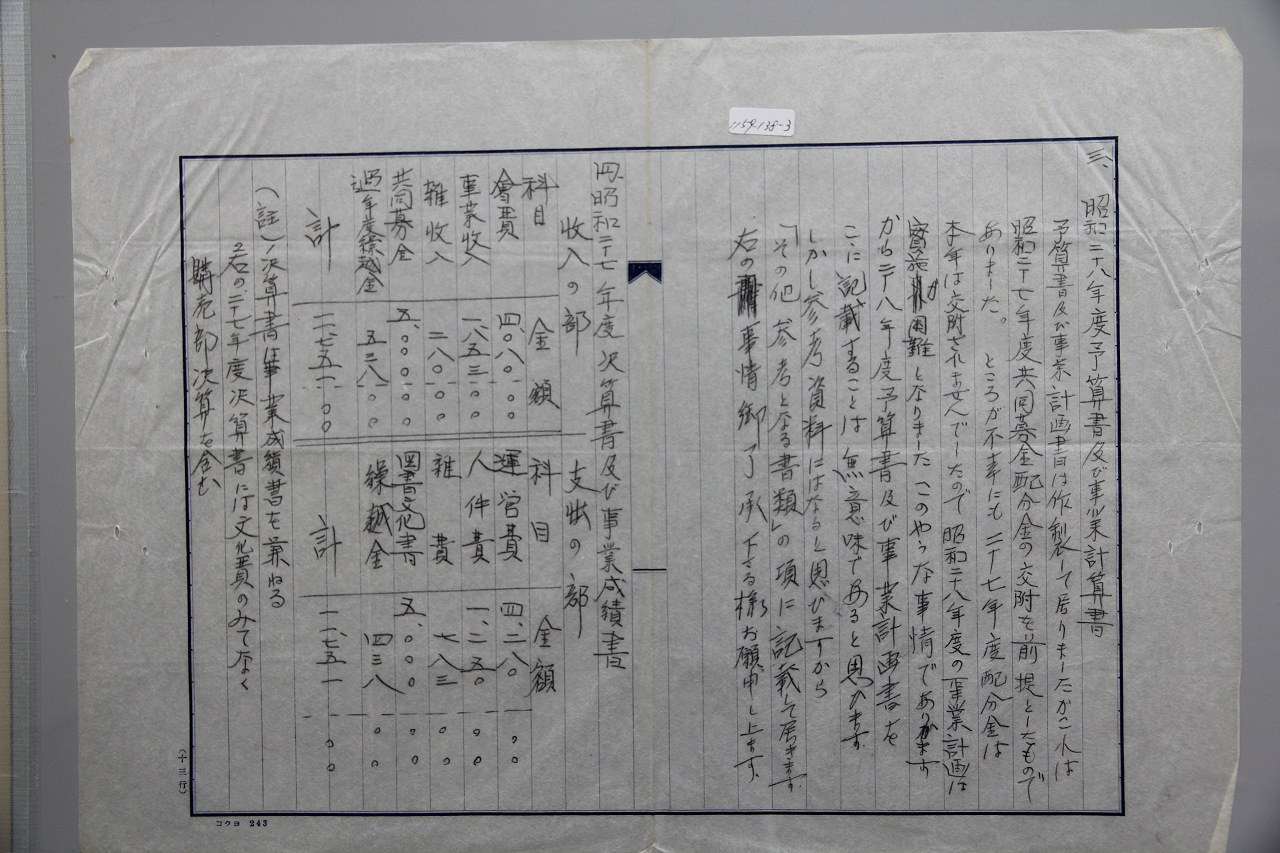 1159-138-3
三、昭和二十八年度予算書及び事業計算書
予算書及び事業計画書は作製して居りましたがこれは
昭和二十七年度共同募金配分金の交附を前提としたもので
ありました。ところが不幸にも二十七年度配分金は
本年は交附されませんでしたので昭和二十八年度の事業計画は
実施が困難となりました このやうな事情でありますか
から二十八年度予算書及び事業計画書を
こゝに記載することは無意味であると思ひます
しかし参考資料にはなると思ひますから
「その他参考となる書類」の項に記載して居きます
右の事情御了承下さる様お願申し上ます、
四、昭和二十七年度決算書及び事業成績書
収入の部 支出の部
科目 金額 科目 金額
會費 四、〇八〇 〇〇 運営費 四、二八〇 〇〇
事業収入 一、八五三 〇〇 人件費 一、二五〇 〇〇
雑収入 二八〇 〇〇 雑費 七八三 〇〇
共同募金 五、〇〇〇 〇〇 図書文化書 五、〇〇〇 〇〇
過年度繰越金 五三八 〇〇 繰越金 四三八 〇〇
計 一一、七五一 〇〇 計 一一、七五一 〇〇
(註)1決算書は事業成績書を兼ねる
2右の二十七年度決算書には文化費のみでなく
購売部決算を含む
(十三行)
コクヨ 243